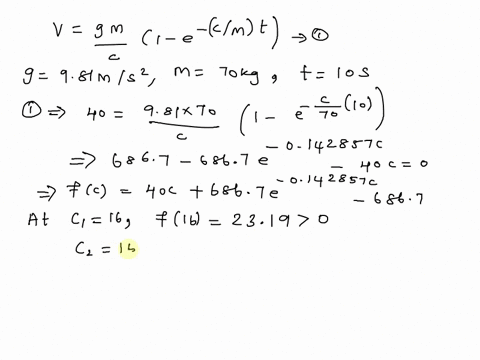 V = gm/c (1 - e^-(c/m)t) → ①
g = 9.81 m/s², m = 70kg, t = 10s
① ⇒ 40 = 9.81×70/c (1 - e^-c/70(10))
⇒ 686.7 - 686.7 e^-0.142857c - 40c = 0
⇒ f(c) = 40c + 686.7e^-0.142857c - 686.7
At C₁ = 16, f(16) = 23.19 > 0
C₂ =